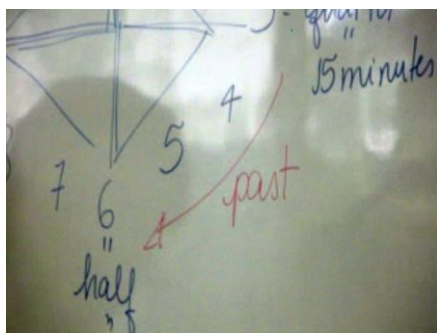 3 = quarter
"
15 minutes
4
5
past
7
6
"
half
"